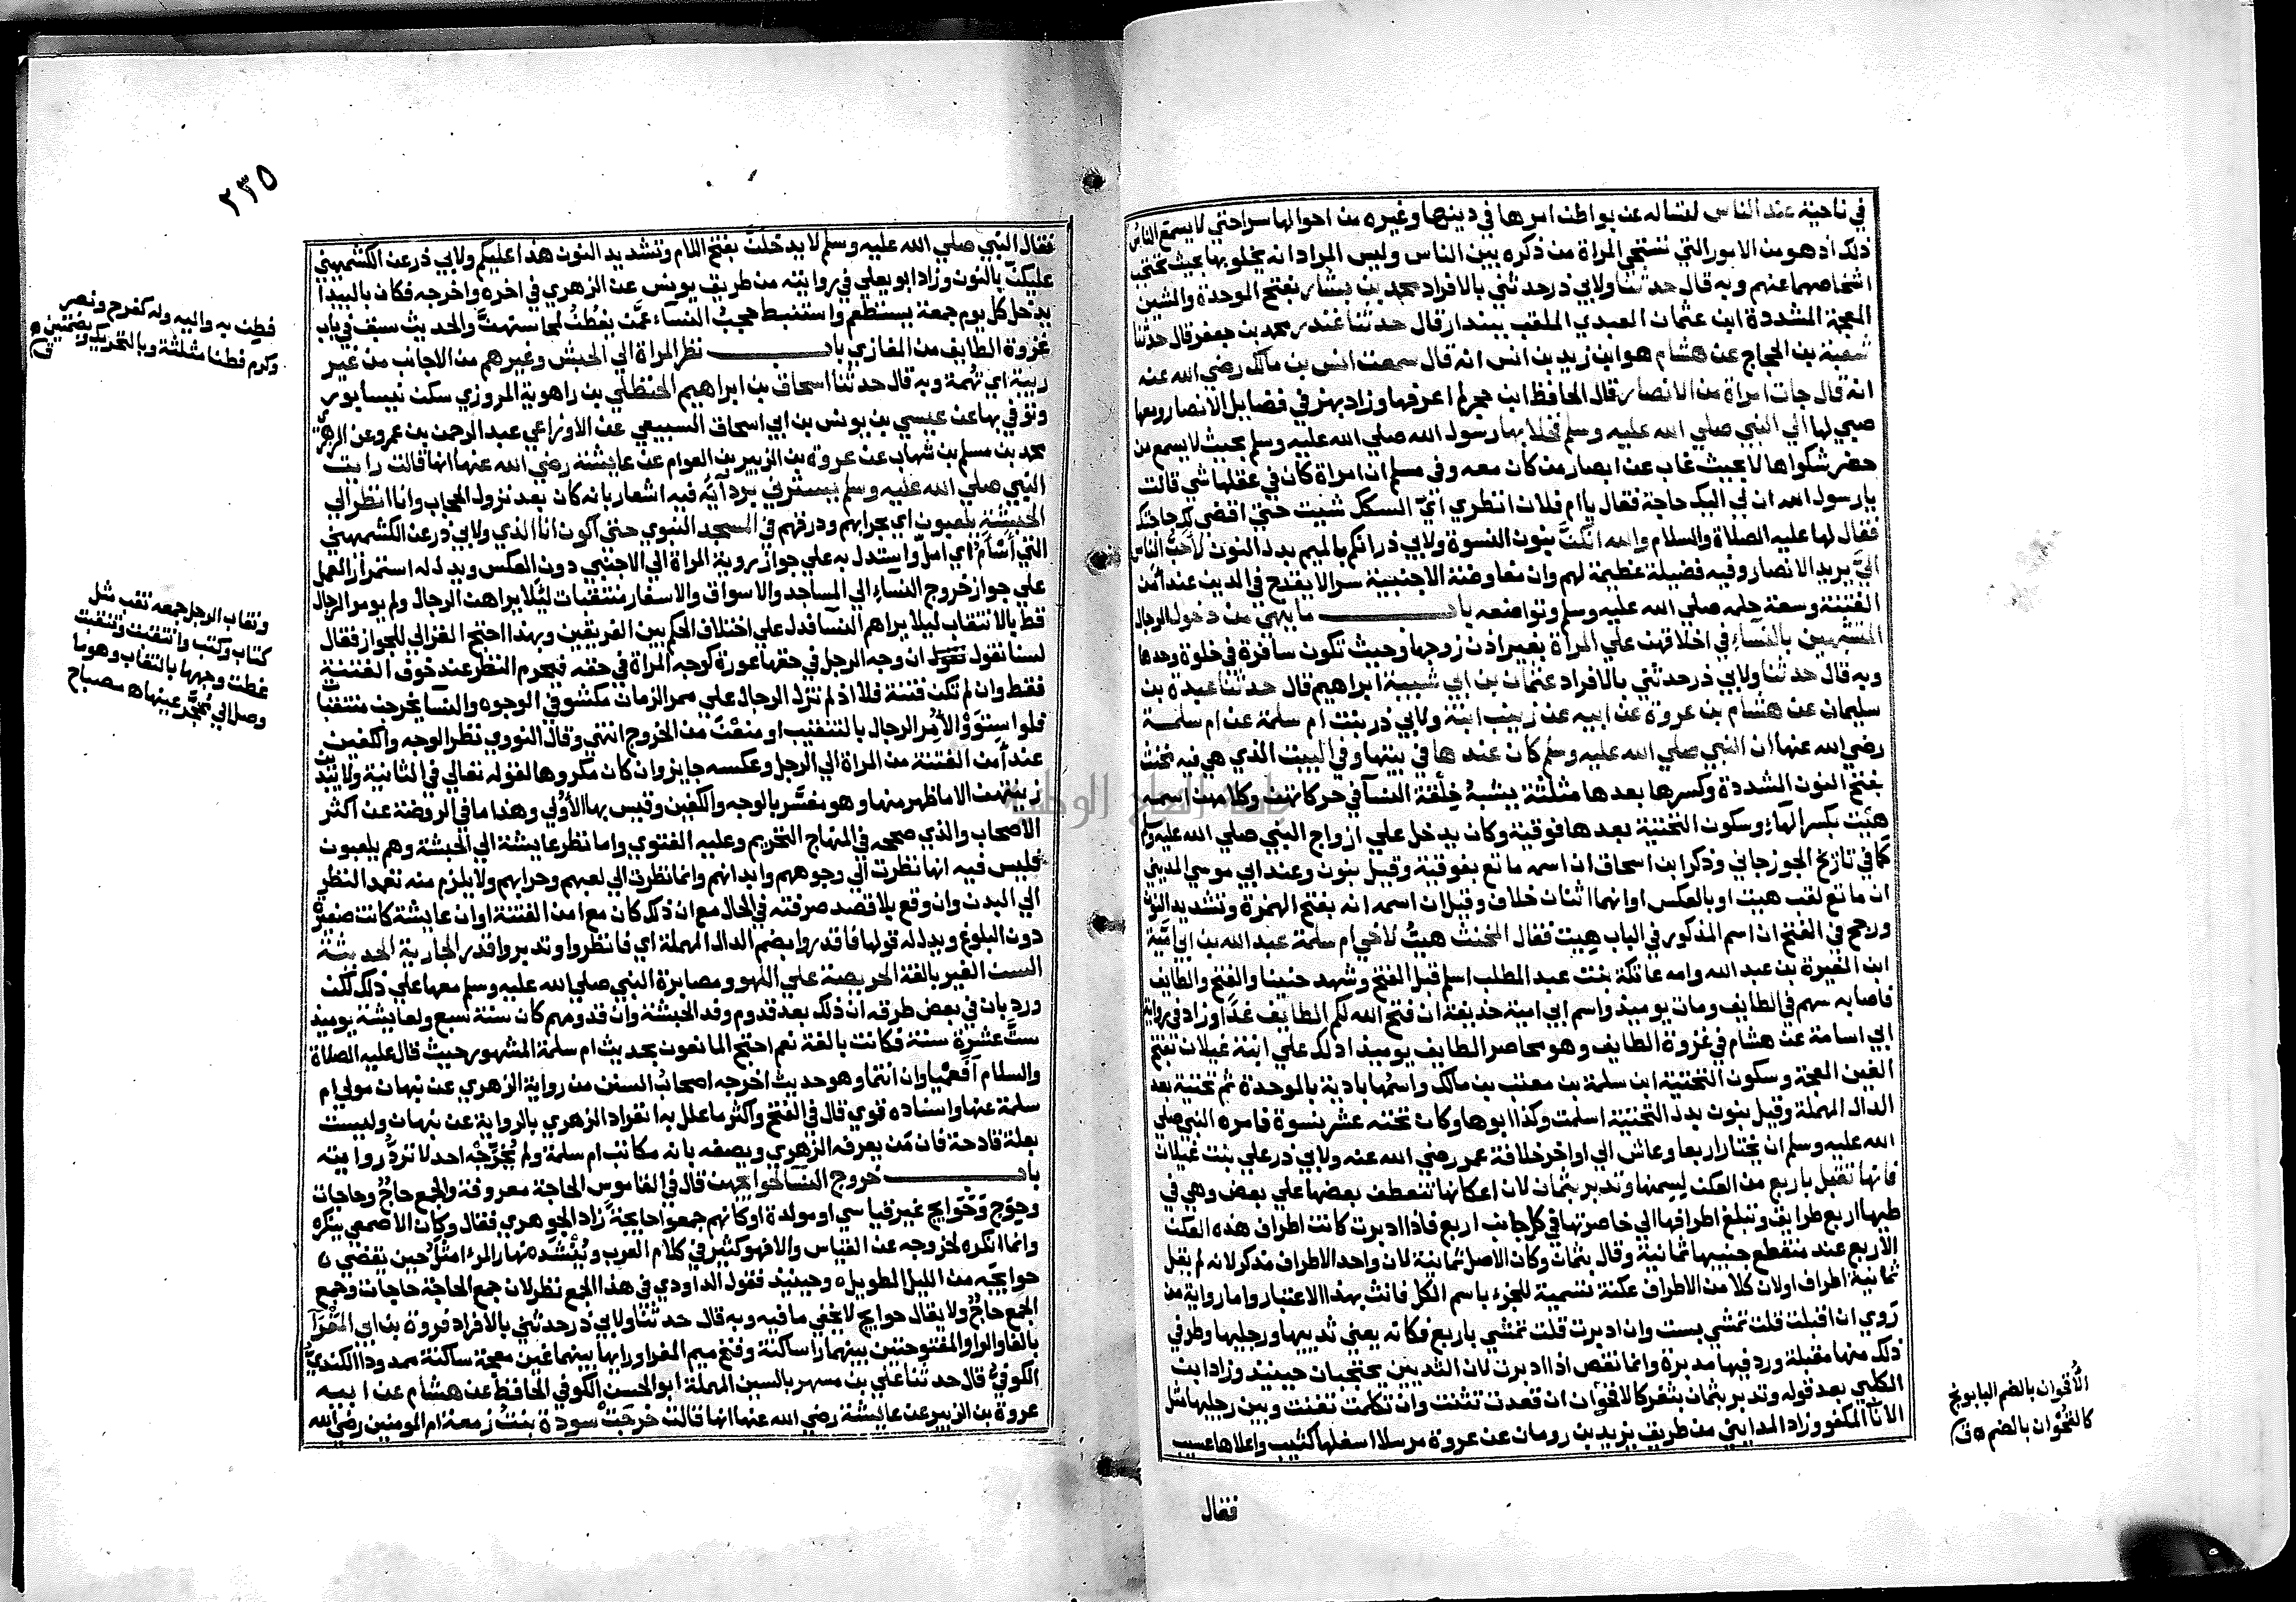 في ناحية عند الناس لتساله عن بواطن امرها في دينها وغيره من احوالها سراحتي لا يسمع الناس
ذلك اذ هو من الامور التي تستحي المراة من ذكره بين الناس وليس المراد انه يخلو بها بحيث تحتجب
اشخاصهما عنهم وبه قال حدثنا ولابي ذر حدثني بالافراد محمد بن بشار بفتح الموحدة والشين
المعجمة المشددة ابن عثمان العبدي الملقب ببندار قال حدثنا غندر محمد بن جعفر قال حدثنا
شعبة بن الحجاج عن هشام هو ابن زيد بن انس انه قال سمعت انس بن مالك رضي الله عنه
انه قال جات امراة من الانصار قال الحافظ ابن حجر لم اعرفها وزاد بهز في فضايل الانصار ومعها
صبي لها الي النبي صلي الله عليه وسلم فخلا بها رسول الله صلي الله عليه وسلم بحيث لا يسمع من
حضر شكواها لا بحيث غاب عن ابصار من كان معه وفي مسلم ان امراة كان في عقلها شي قالت
يا رسول الله ان لي اليك حاجة فقال يا ام فلان انظري اي السكك شئت حتي اقضي لك حاجتك
فقال لها عليه الصلاة والسلام والله انكن بنون النسوة ولابي ذر انكم بالميم بدل النون لاحب الناس
الي يريد الانصار وفيه فضيلة عظيمة لهم وان مفاوضة الاجنبية سرا لا يقدح في الدين عند امن
الفتنة وسعة حلمه صلي الله عليه وسلم وتواضعه باب ما ينهي من دخول الرجال
المتشبهين بالنساء في اخلاقهن علي المراة بغير اذن زوجها وحيث تكون سافرة في خلوة وحدها
وبه قال حدثنا ولابي ذر حدثني بالافراد عثمان بن ابي شيبة ابراهيم قال حدثنا عبدة بن
سليمان عن هشام بن عروة عن ابيه عن زينب ابنة ولابي ذر بنت ام سلمة عن ام سلمة
رضي الله عنها ان النبي صلي الله عليه وسلم كان عندها في بيتها وفي البيت الذي هي فيه مخنث
بفتح النون المشددة وكسرها بعدها مثلثة يشبه خلقة النسا في حركاتهن وكلامهن اسمه
هيت بكسر الهاء وسكون التحتية بعدها فوقية وكان يدخل علي ازواج النبي صلي الله عليه وسلم
كما في تاريخ الجوزجاني وذكر ابن اسحاق ان اسمه ماتع بفوقية وقيل بنون وعند ابي موسي المديني
ان ماتع لقب هيت او بالعكس او انهما اثنان خلاف وقيل ان اسمه انه بفتح الهمزة وتشديد النون
ورجح في الفتح ان اسم المذكور في الباب هيت فقال المخنث هيت لاخي ام سلمة عبد الله بن ابي امية
ابن المغيرة بن عبد الله وامه عاتكة بنت عبد المطلب اسلم قبل الفتح وشهد حنينا والفتح والطايف
فاصابه سهم في الطايف ومات يوميذ واسم ابي امية حذيفة ان فتح الله لكم الطايف غدا وزاد في رواية
ابي اسامة عن هشام في غزوة الطايف وهو محاصر الطايف يوميذ ادلك علي ابنة غيلان بفتح
الغين المعجمة وسكون التحتية ابن سلمة بن معتب بن مالك واسمها بادية بالموحدة ثم تحتية بعد
الدال المهملة وقيل بنون بدل التحتية اسلمت وكذا ابوها وكان تحته عشر نسوة فامره النبي صلي
الله عليه وسلم ان يختار اربعا وعاش الي اواخر خلافة عمر رضي الله عنه ولابي ذر علي بنت غيلان
فانها تقبل باربع من العكن لسمنها وتدبر بثمان لان اعكانها تنعطف بعضها علي بعض وهي في
طيها اربع طرايق وتبلغ اطرافها الي خاصرتها في كل جانب اربع فاذا ادبرت كانت اطراف هذه العكن
الاربع عند منقطع جنبيها ثمانية وقال بثمان وكان الاصل ثمانية لان واحد الاطراف مذكر لانه لم يقل
ثمانية اطراف او لان كلا من الاطراف عكنة تسمية للجزء باسم الكل فانث بهذا الاعتبار واما رواية من
روي ان اقبلت قلت تمشي بست وان ادبرت قلت تمشي باربع فكانه يعني ثدييها ورجليها وطرفي
ذلك منها مقبلة وردفيها مدبرة وانما نقص اذا ادبرت لان الثديين يحتجبان حينيذ وزاد ابن
الكلبي بعد قوله وتدبر بثمان بثغر كالاقحوان ان قعدت تثنت وان تكلمت تغنت وبين رجليها مثل
الانا المكفو وزاد المدايني من طريق يزيد بن رومان عن عروة مرسلا اسفلها كثيب واعلاها عسيب
الأقحوان بالضم البابونج
كالقحوان بالضم ه ق
فقال
٢٣٥
فقال النبي صلي الله عليه وسلم لا يدخلن بفتح اللام وتشديد النون هذا عليكم ولابي ذر عن الكشميهني
عليكن بالنون وزاد ابو يعلي في روايته من طريق يونس عن الزهري في اخره واخرجه فكان بالبيدا
يدخل كل يوم جمعة يستطعم واستنبط حجب النساء عمن يفطن لمحاسنهن والحديث سبق في باب
غزوة الطايف من المغازي باب نظر المراة الي الحبش وغيرهم من الاجانب من غير
ريبة اي تهمة وبه قال حدثنا اسحاق بن ابراهيم الحنظلي بن راهوية المروزي سكن نيسابور
وتوفي بها عن عيسي بن يونس بن ابي اسحاق السبيعي عن الاوزاعي عبد الرحمن بن عمرو عن الزهري
محمد بن مسلم بن شهاب عن عروة بن الزبير بن العوام عن عايشة رضي الله عنها انها قالت رايت
النبي صلي الله عليه وسلم يسترني بردآئه فيه اشعار بانه كان بعد نزول الحجاب وانا انظر الي
الحبشة يلعبون اي بحرابهم ودرقهم في المسجد النبوي حتي اكون انا الذي ولابي ذر عن الكشميهني
التي أسأم اي امل واستدل به علي جواز روية المراة الي الاجنبي دون العكس ويدل له استمرار العمل
علي جواز خروج النساء الي المساجد والاسواق والاسفار منتقبات لئلا يراهن الرجال ولم يومر الرجال
قط بالانتقاب ليلا يراهم النسا فدل علي اختلاف الحكم بين الفريقين وبهذا احتج الغزالي للجواز فقال
لسنا نقول ان وجه الرجل في حقها عورة كوجه المراة في حقه فيحرم النظر عند خوف الفتنة
فقط وان لم تكن فتنة فلا اذ لم تزل الرجال علي ممر الزمان مكشوفي الوجوه والنسا يخرجن منتقبات
فلو استووا لأمر الرجال بالتنقيب او منعن من الخروج انتهي وقال النووي نظر الوجه والكفين
عند امن الفتنة من المراة الي الرجل وعكسه جايز وان كان مكروها لقوله تعالي في الثانية ولا يبدين
زينتهن الا ما ظهر منها وهو مفسر بالوجه والكفين وقيس بها الاولي وهذا ما في الروضة عن اكثر
الاصحاب والذي صححه في المنهاج التحريم وعليه الفتوي واما نظر عايشة الي الحبشة وهم يلعبون
فليس فيه انها نظرت الي وجوههم وابدانهم وانما نظرت الي لعبهم وحرابهم ولا يلزم منه تعمد النظر
الي البدن وان وقع بلا قصد صرفته في الحال مع ان ذلك كان مع امن الفتنة او ان عايشة كانت صغيرة
دون البلوغ ويدل له قولها فاقدروا بضم الدال المهملة اي فانظروا وتدبروا قدر الجارية الحديثة
السن الغير بالغة الحريصة علي اللهو ومصابرة النبي صلي الله عليه وسلم معها علي ذلك لكن
ورد بان في بعض طرقه ان ذلك بعد قدوم وفد الحبشة وان قدومهم كان سنة سبع ولعايشة يوميذ
ست عشرة سنة فكانت بالغة نعم احتج المانعون بحديث ام سلمة المشهور حيث قال عليه الصلاة
والسلام أفعميا وان انتما وهو حديث اخرجه اصحاب السنن من رواية الزهري عن نبهان مولي ام
سلمة عنها واسناده قوي قال في الفتح واكثر ما علل به انفراد الزهري بالرواية عن نبهان وليست
بعلة قادحة فان من يعرفه الزهري ويصفه بانه مكاتب ام سلمة ولم يجرحه احد لا ترد روايته
باب خروج النسا لحوايجهن قال في القاموس الحاجة معروفة والجمع حاج وحاجات
وحوج وحوايج غير قياسي او مولدة او كانهم جمعوا حايجة زاد الجوهري فقال وكان الاصمعي ينكره
وانما انكره لخروجه عن القياس والا فهو كثير في كلام العرب وينشد نهار المرء امثل حين يقضي ه
حوايجه من الليل الطويل ه وحينيذ فقول الداودي في هذا الجمع نظر لان جمع الحاجة حاجات وجمع
الجمع حاج ولا يقال حوايج لا يخفي ما فيه وبه قال حدثنا ولابي ذر حدثني بالافراد فروة بن ابي المغرآ
بالفا والواو المفتوحتين بينهما را ساكنة وفتح ميم المغرا ورايها بينهما غين معجمة ساكنة ممدودا الكندي
الكوفي قال حدثنا علي بن مسهر بالسين المهملة ابو الحسن الكوفي الحافظ عن هشام عن ابيه
عروة بن الزبير عن عايشة رضي الله عنها انها قالت خرجت سودة بنت زمعة ام المومنين رضي الله
فطن به واليه وله كفرح ونصر
وكرم فطنا مثلثة وبالتحريك وبضمتين ه ق
ونقاب الرجل جمعه نقب مثل
كتاب وكتب وانتقبت وتنقبت
غطت وجهها بالنقاب وهو ما
وصل الي محجر عينها ه مصباح
جامعة النجاح الوطنية